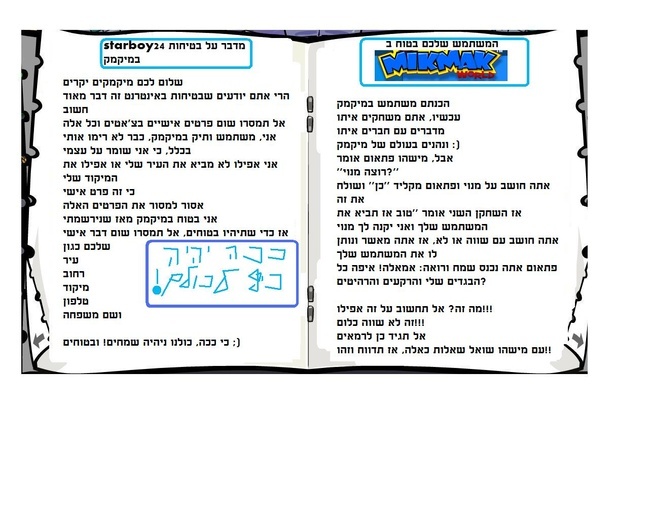 המשתמש שלכם בטוח ב
MIKMAK
WORLD
הכנתם משתמש במיקמק
עכשיו, אתם משחקים איתו
מדברים עם חברים איתו
ונהנים בעולם של מיקמק :)
אבל, מישהו פתאום אומר
"רוצה מנוי?"
אתה חושב על מנוי ופתאום מקליד "כן" ושולח
את זה
אז השחקן השני אומר "טוב אז תביא את
המשתמש שלך ואני יקנה לך מנוי
אתה חושב עם שווה או לא, אז אתה מאשר ונותן
לו את המשתמש שלך
פתאום אתה נכנס שמח ורואה: אמאלה! איפה כל
הבגדים שלי והרקעים והרהיטים?
מה זה? אל תחשוב על זה אפילו!!!
זה לא שווה כלום!!!
אל תגיד כן לרמאים
עם מישהו שואל שאלות כאלה, אז תדווח וזהו!!
starboy24 מדבר על בטיחות
במיקמק
שלום לכם מיקמקים יקרים
הרי אתם יודעים שבטיחות באינטרנט זה דבר מאוד
חשוב
אל תמסרו שום פרטים אישיים בצ'אטים וכל אלה
אני, משתמש ותיק במיקמק, כבר לא רימו אותי
בכלל, כי אני שומר על עצמי
אני אפילו לא מביא את העיר שלי או אפילו את
המיקוד שלי
כי זה פרט אישי
אסור למסור את הפרטים האלה
אני בטוח במיקמק מאז שנירשמתי
אז כדי שתיהיו בטוחים, אל תמסרו שום דבר אישי
שלכם כגון
עיר
רחוב
מיקוד
טלפון
ושם משפחה
ככה יהיה
כיף לכולם!
כי ככה, כולנו ניהיה שמחים! ובטוחים ;)